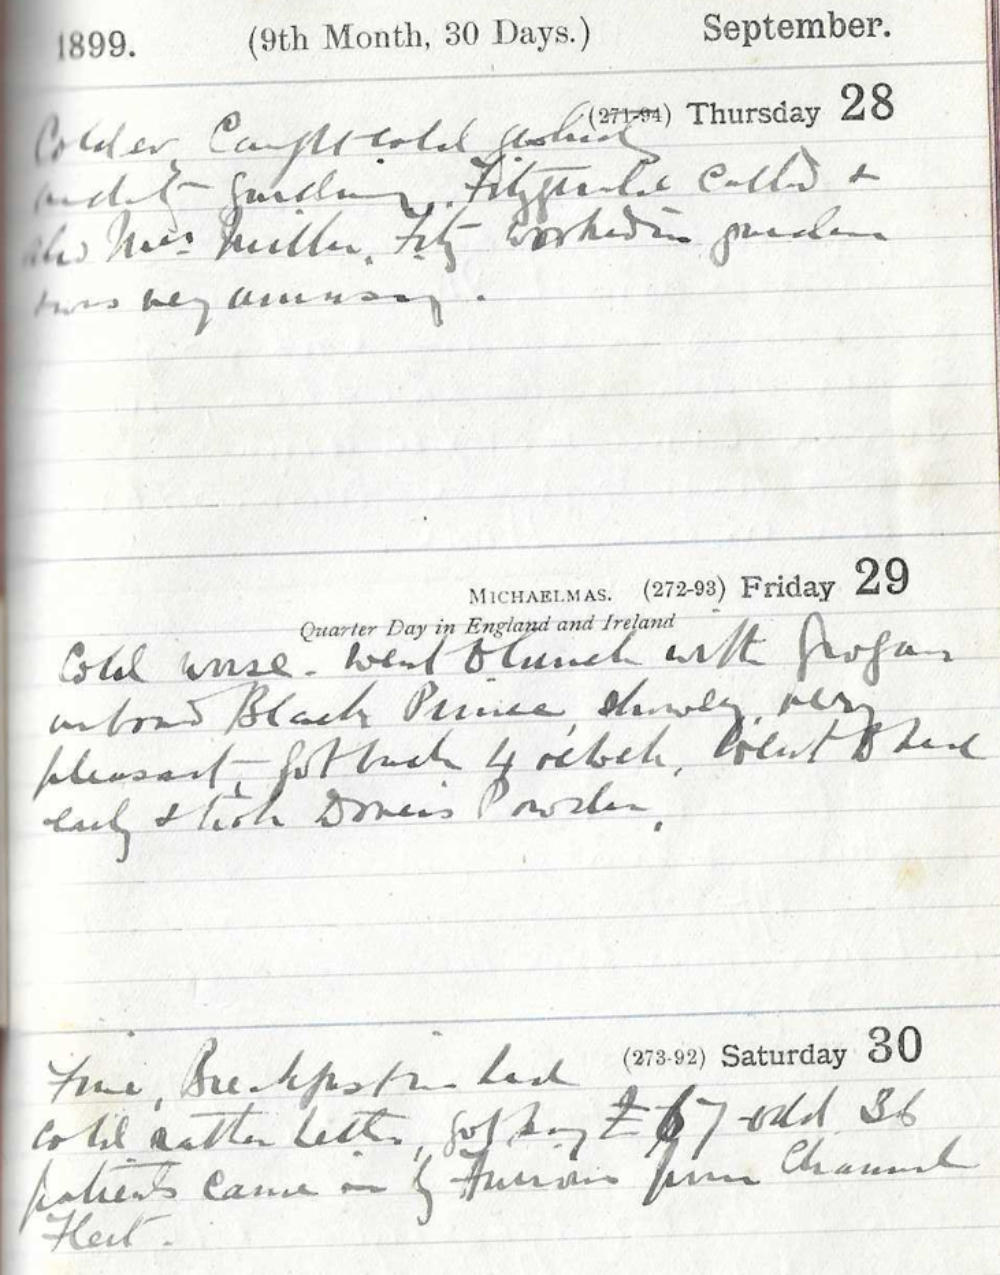 1899. (9th Month, 30 Days.) September.
(271-94) Thursday 28
Colder, Caught cold
gardening. Fitzgerald called &
also Mrs. Miller. Fitz worked in garden
& was very amusing.
MICHAELMAS. (272-93) Friday 29
Quarter Day in England and Ireland
Cold worse. Went to lunch with Grogan
on board Black Prince, showery, very
pleasant, got back 4 oclock, Went to bed
early & took Dovers Powder.
(273-92) Saturday 30
Fine, Breakfast in bed
cold rather better, got pay £67 odd 36
patients came in by Furious from Channel
Fleet.